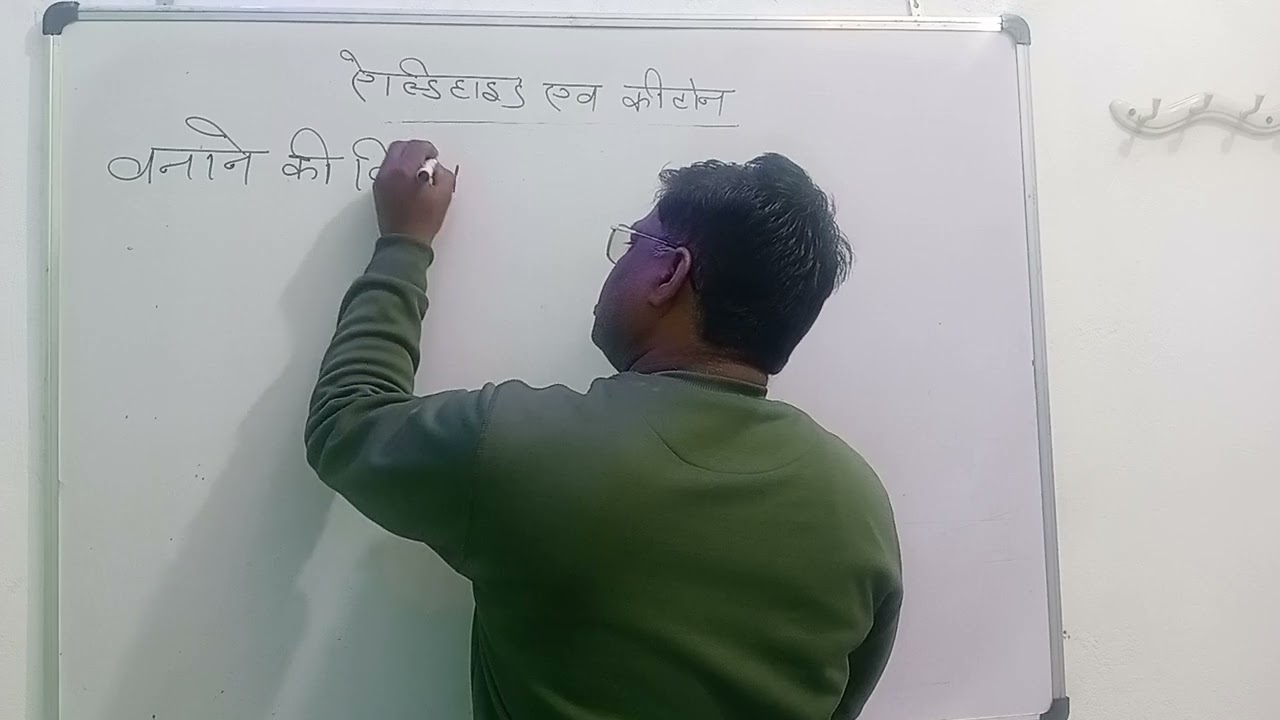 ऐल्डिहाइड एव कीटोन
बनाने की